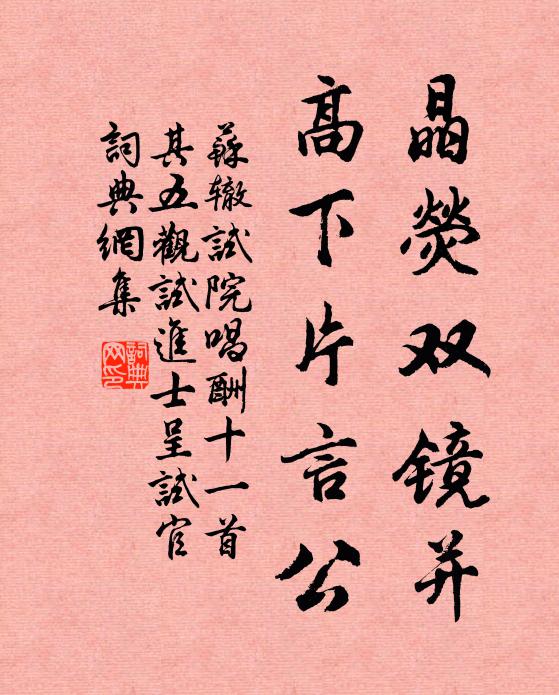 晶熒双镜并
高下片言公
蘇辙試院唱酬十一首
其五觀試進士呈試官
詞典網集
詞典
网印